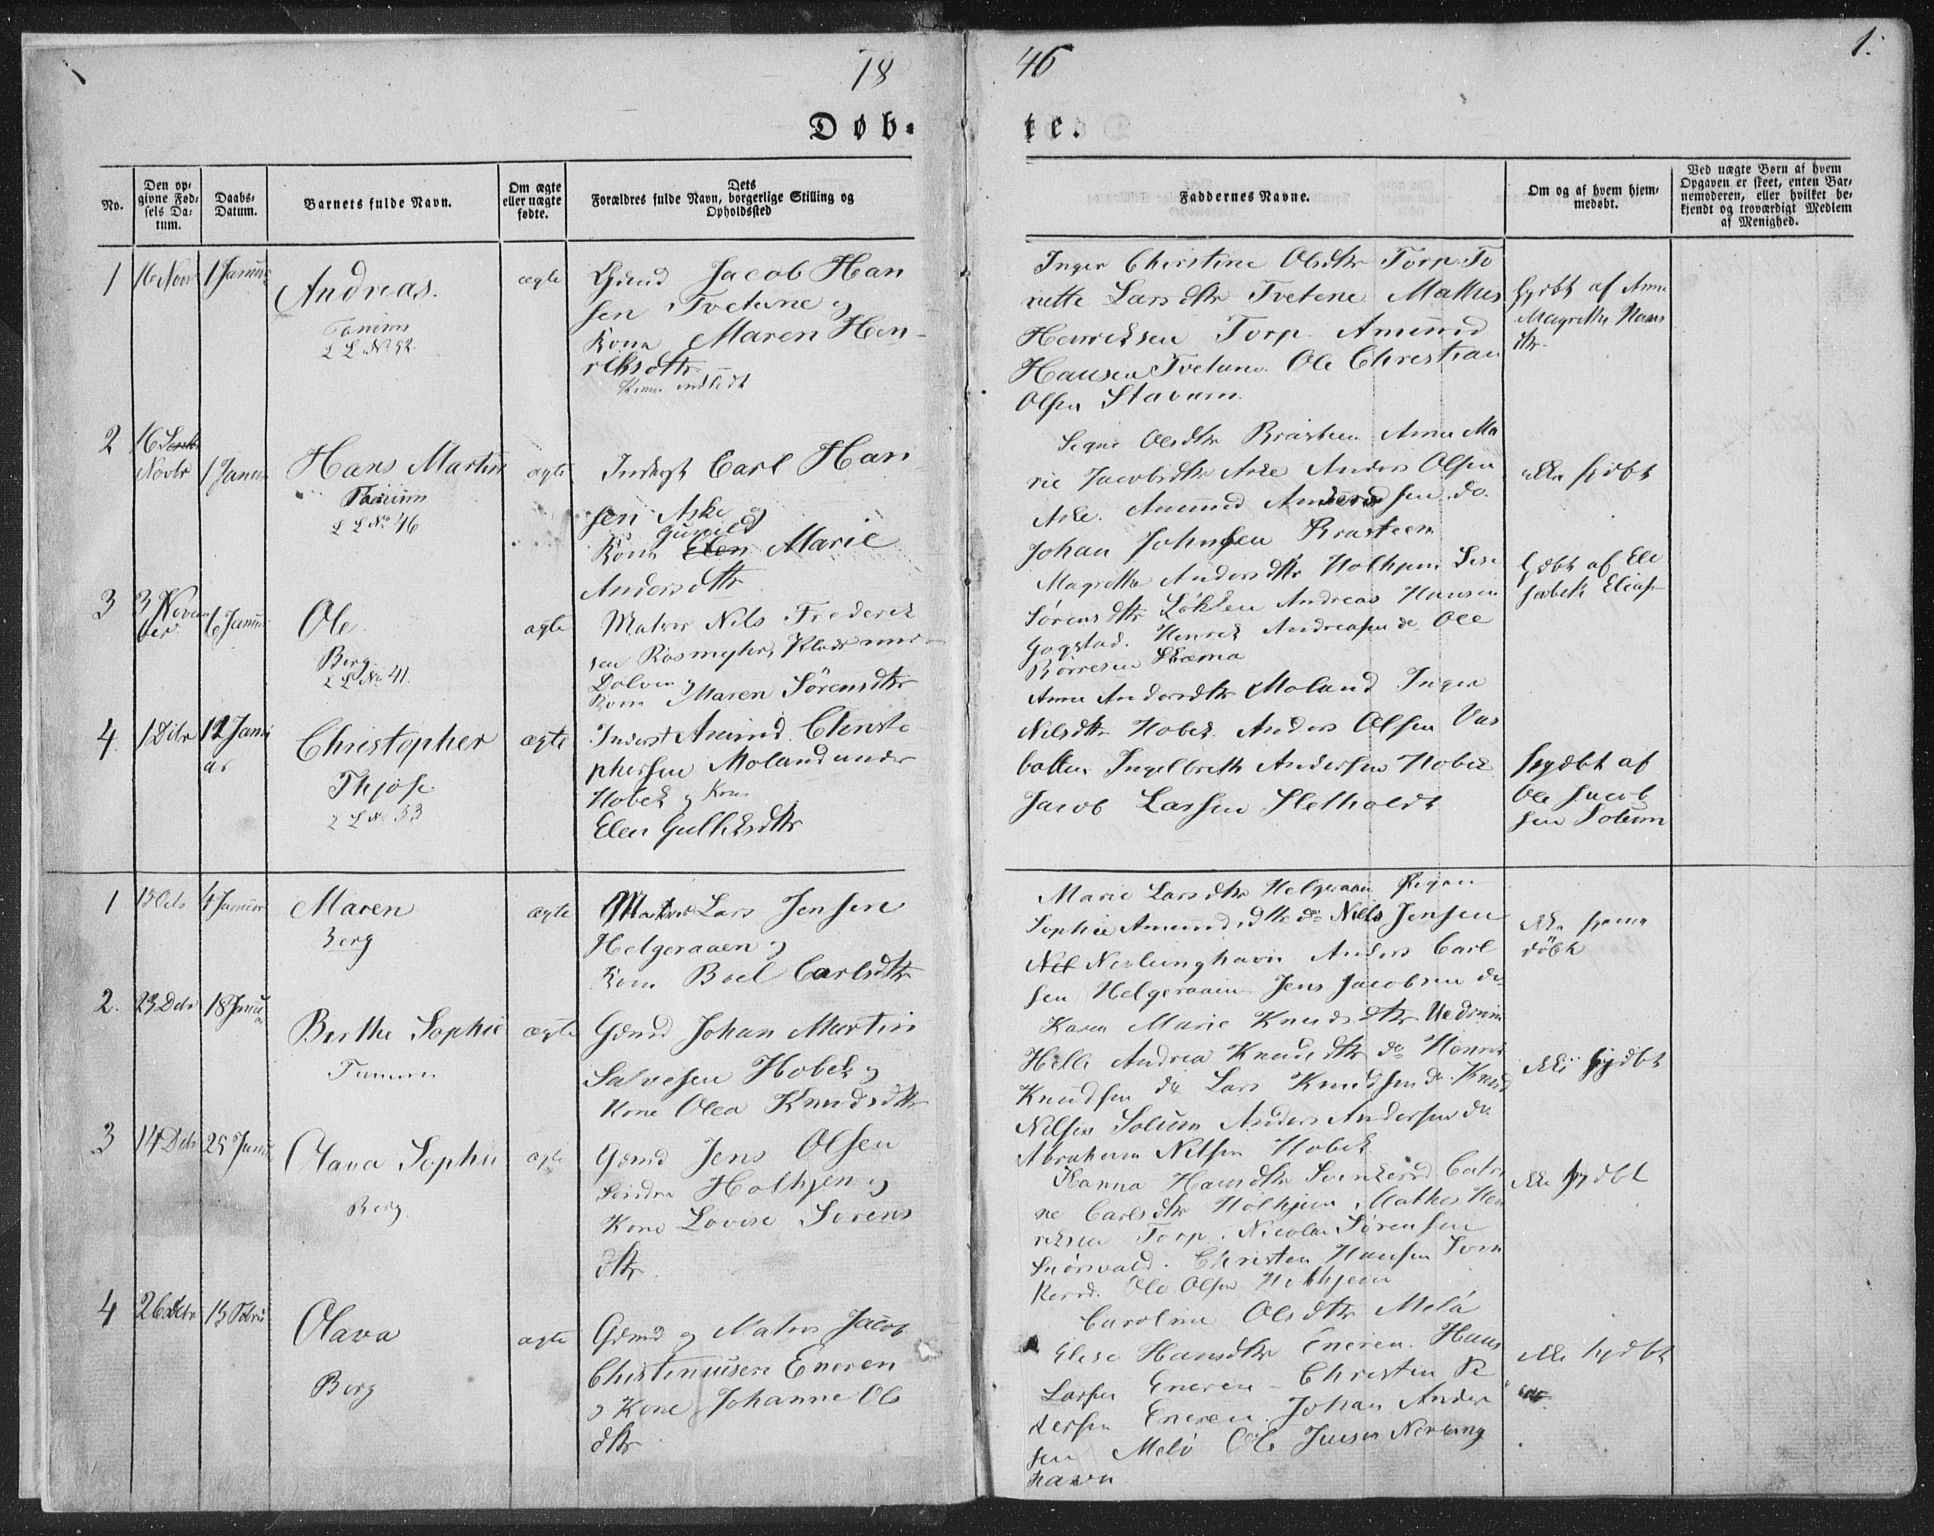 18
46
1.
Døb-
te.
No.
Den op-
givne Fød-
sels Da-
tum.
Daabs-
Datum.
Barnets fulde Navn.
Om ægte
eller uægte
fødte.
Dets
Forældres fulde Navn, borgerlige Stilling og
Opholdssted
Faddernes Navne.
Om og af hvem hjem-
medøbt.
Ved uægte Børn af hvem
Opgaven er skeet, enten Bar-
nemoderen, eller hvilket be-
kjendt og troværdigt Medlem
af Menighed.
1
16 Novr
1 Januar
Andreas.
Tanum
L L No 52.
ægte
Gmd Jacob Han
sen Tvetene og
Kone Maren Hen-
riksdttr
Inger Christine Olsdttr Torp. To
nette Larsdttr Tvetene Mathis
Henriksen Torp. Amund
Hansen Tvetene. Ole Christian
Olsen Stavum.
hjdbt af Anne
Magrethe Hans
dttr.
2
16
Novbr
1 Januar
Hans Martin
Tanum
L L No 46
ægte
Inderst Carl Han
sen Aske og
Gunild
Kone Elen Marie
Andersdttr
Signe Olsdttr Brasteen Anne Ma
rie Jacobsdttr Aske Anders Olsen
Aske. Amund Andersen do.
Johan Johnsen Brasteen
ikke hjdbt
3
3 Novem
ber
6 Januar
Ole
Berg
L L No 41.
ægte
Matros Nils Frederik
sen Rosmyhr,
Dolven og
Kone Maren Sørensdttr
Magrethe Andersdttr Holhjem Lise
Sørensdttr Løkken Andreas Hansen
Gogstad. Henrik Andreasen do Ole
Børresen
hjdbt af Eli
sabeth Elias
4.
1 Dcbr
11 Janu
ar
Christopher
Thjøse.
L L No 53
ægte
Inderst Amund Christo
phersen Moland under
Hobek og Kone
Elen Gulliksdttr
Anne Andersdttr Moland Inger
Nilsdttr Hobek Anders Olsen Vas
botten Ingelbreth Andersen Hobek
Jacob Larsen Sletholdt
hjdbt af
Ole Jacob
sen Solum
1
4 Januar
Maren
Berg
ægte
Matros Lars Jensen
Helgeraaen og
Kone Boel Carlsdttr
Marie Larsdttr Helgeraaen
Sophie Amundsdttr do Niels Jensen
Nevlunghavn Anders Carl
sen Helgeraaen Jens Jacobsen do
ikke hjemme
døbt
2.
23 Dcbr
18 Janu
ar
Berthe Sophie
Tanum
ægte
Gmd Johan Martin
Salvesen Hobek og
Kone Olea Knudsdttr
Karen Marie Knudsdttr
Helle Andrea Knudsdttr do Henrik
Knudsen do Lars Knudsen do Knud
Nilsen Solum Anders Andersen do
Abraham Nilsen Hobek
ikke hjdbt
3
14 Dcbr
25 Januar
Olava Sophie
Berg.
ægte
Gmd Jens Olsen
Søndre Holhjem og
Kone Lovise Sørens
dttr
Hanna Hansdttr Catri
ne Carlsdttr Holhjem Mathis Hen
riksen Torp. Nicolai Sørensen
Christen Hansen
Ole Olsen Holhjem
ikke hjdbt
4
26 Dcbr
15 Febru
Olava
Berg
ægte
Gmd og Matros Jacob
Christensen Eneren
og Kone Johanne Ols
dttr
Caroline Olsdttr Melø
Elise Hansdttr Eneren. Hans
Larsen Eneren - Christen Pe
dersen Eneren Johan Ander
sen Melø Ole Jensen Nevlung
havn
ikke hjdbt